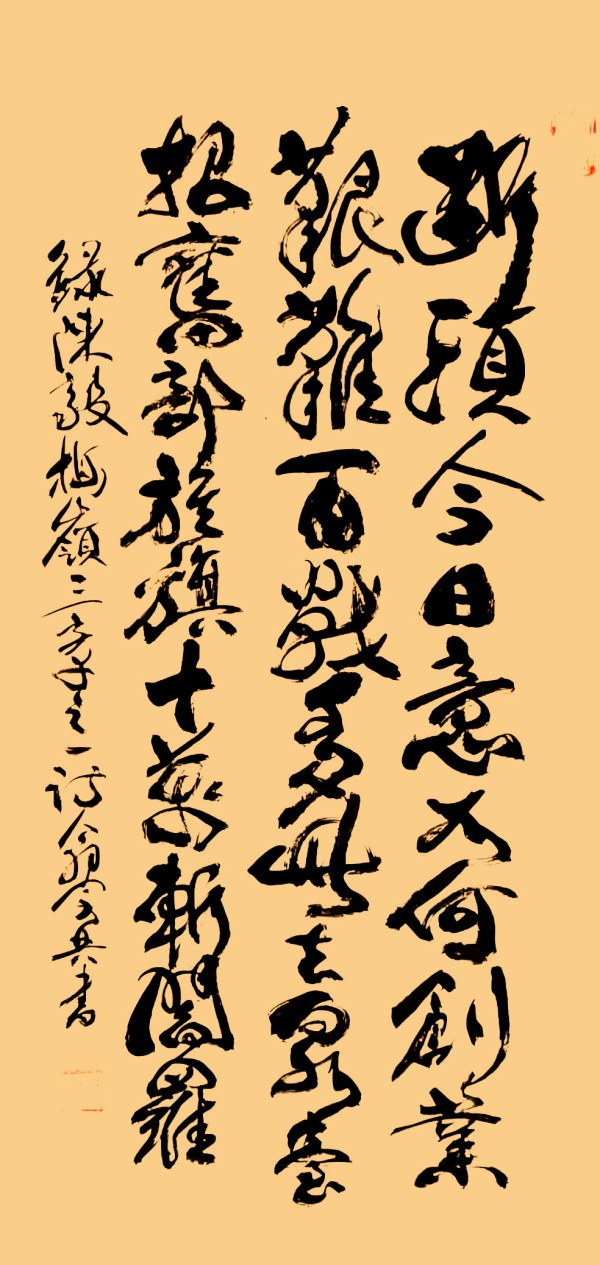 斷頭今日意如何創業
艱難百戰多此去泉臺
招舊部旌旗十萬斬閻羅
錄陳毅梅嶺三章之一詩
書